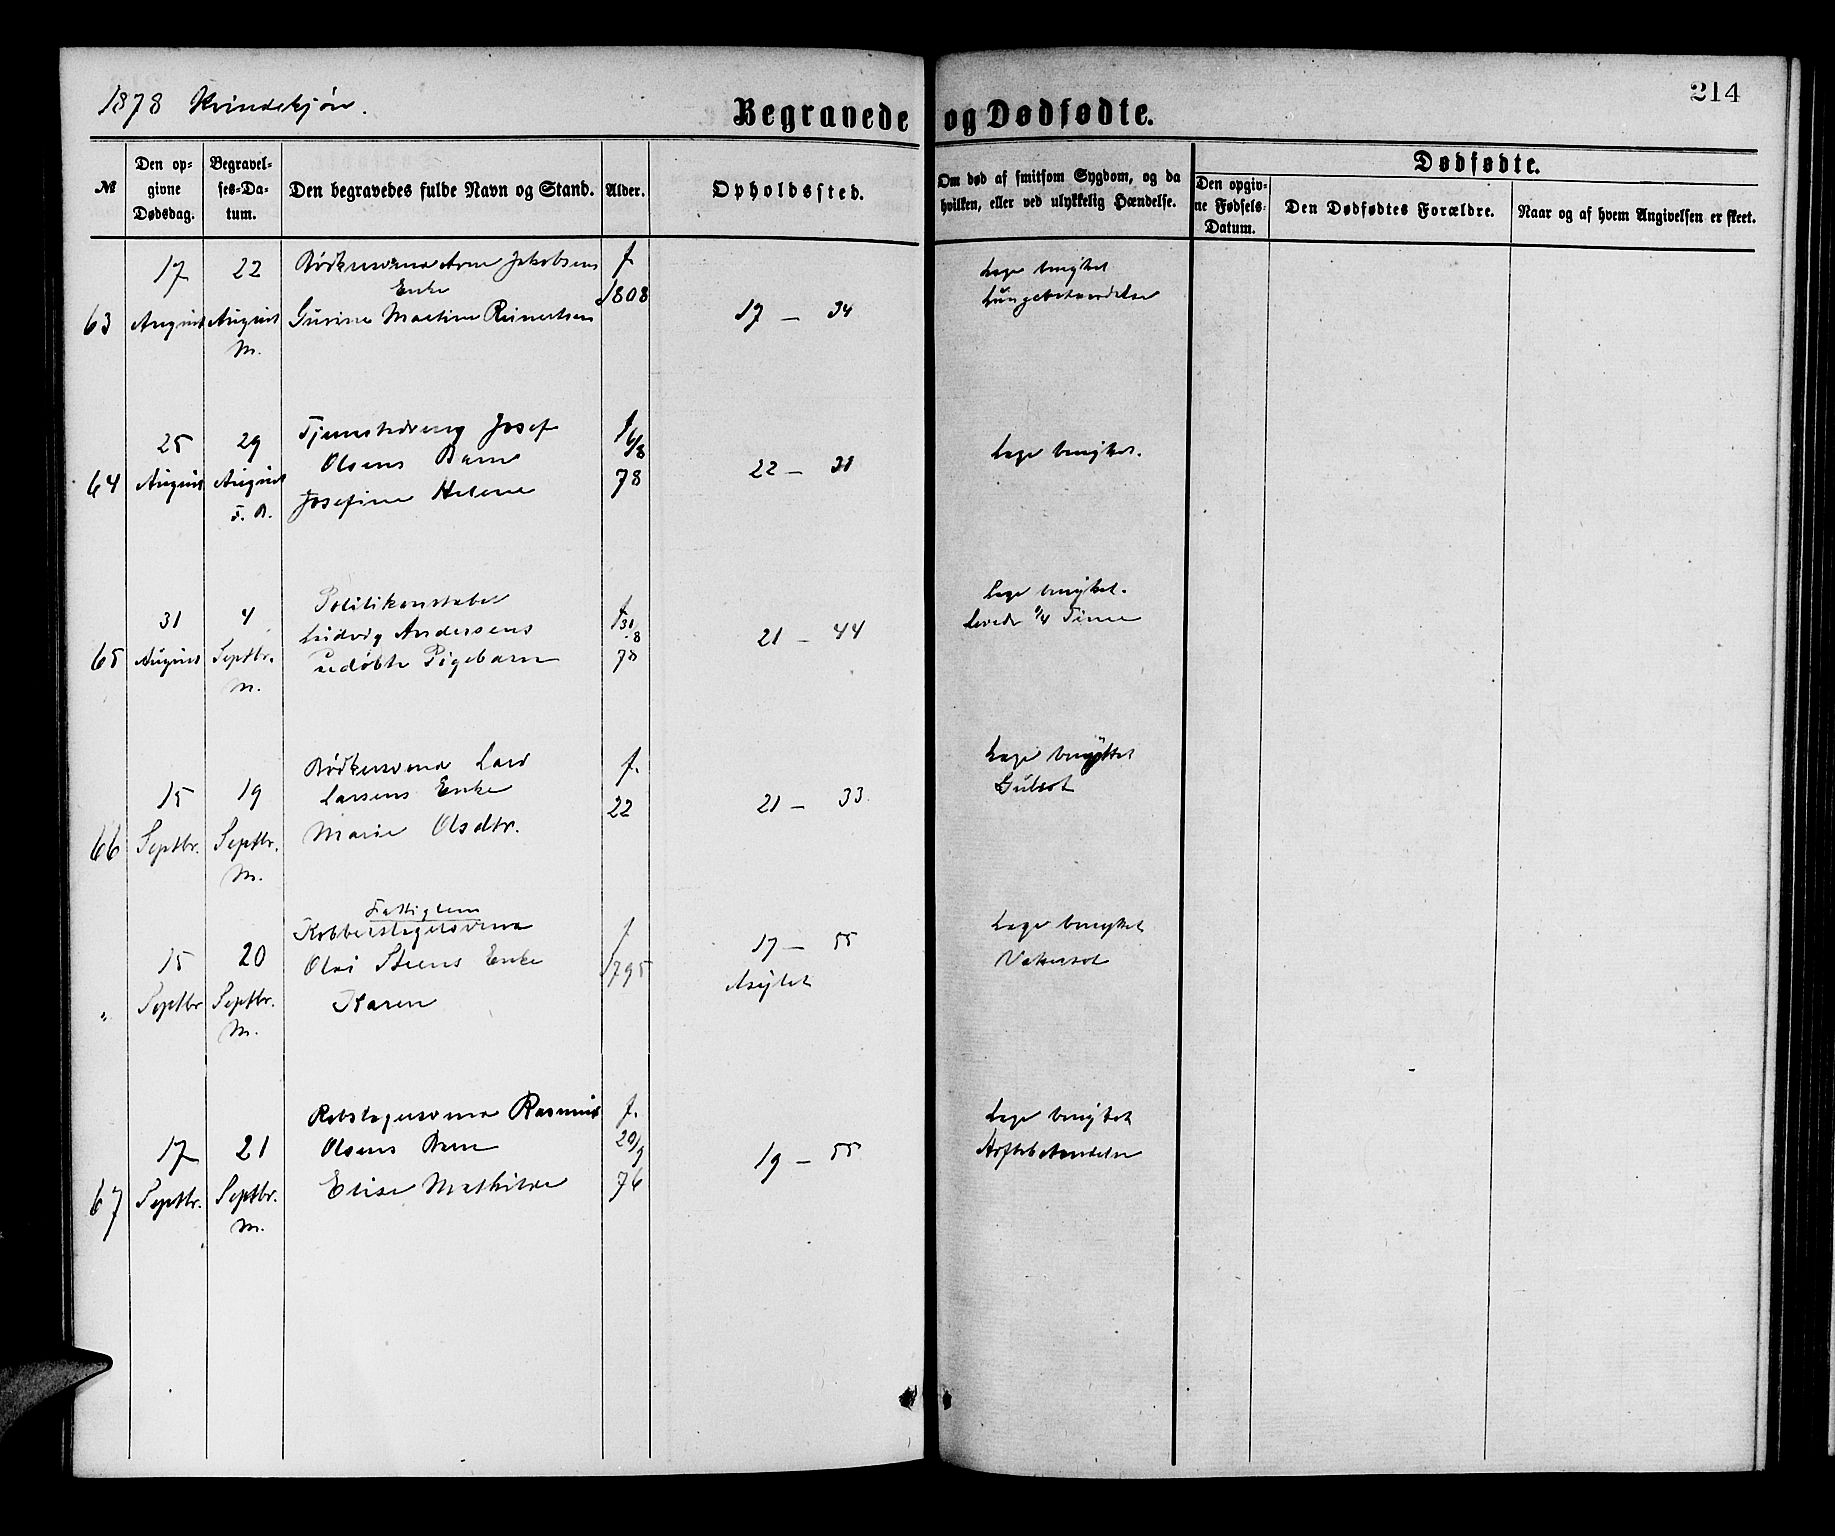 1878 Kvindekjön.
Begravede og Dødfødte.
214
№
Den op-
givne
Dødsdag.
Begravel-
ses-Da-
tum.
Den begravedes fulde Navn og Stand.
Alder.
Opholdssted.
Om død af smitsom Sygdom, og da
hvilken, eller ved ulykkelig Hændelse.
Dødfødte.
Den opgiv-
ne Fødsels-
Datum.
Den Dødfødtes Forældre.
Naar og af hvem Angivelsen er skeet.
63
17
August
22
August
M.
Bödkersvend Arne Jakobsens
Enke
Gurine Martine Reinertsen
f.
1808
17 — 34
Læge benyttet
Lungebetændelse
64
25
August
29
August
F. B.
Tjenestedreng Josef
Olsens Barn
Josefine Helene
f.
6/8
78
22 — 21
Læge benyttet.
65
31
August
4
Septbr.
M.
Politikonstabel
Ludvig Andersens
udöbte Pigebarn
f.
31/8
78
21 — 44
Læge benyttet.
Levede 1/4 Time
66
15
Septbr.
19
Septbr.
M.
Bödkersvend Lars
Larsens Enke
Marie Olsdtr.
f.
22
21 — 33
Læge benyttet
Gulsot
"
15
Septbr
20
Septbr.
M.
Fattiglem
Kobberslagersvend
Olai Steens Enke
Karen
f
1795
17 — 55
Asylet
Læge benyttet
Vatersot
67
17
Septbr.
21
Septbr.
M.
Rebslagersvend Rasmus
Olsens Barn
Elise Mathilde
f.
20/9
76
19 — 55
Læge benyttet